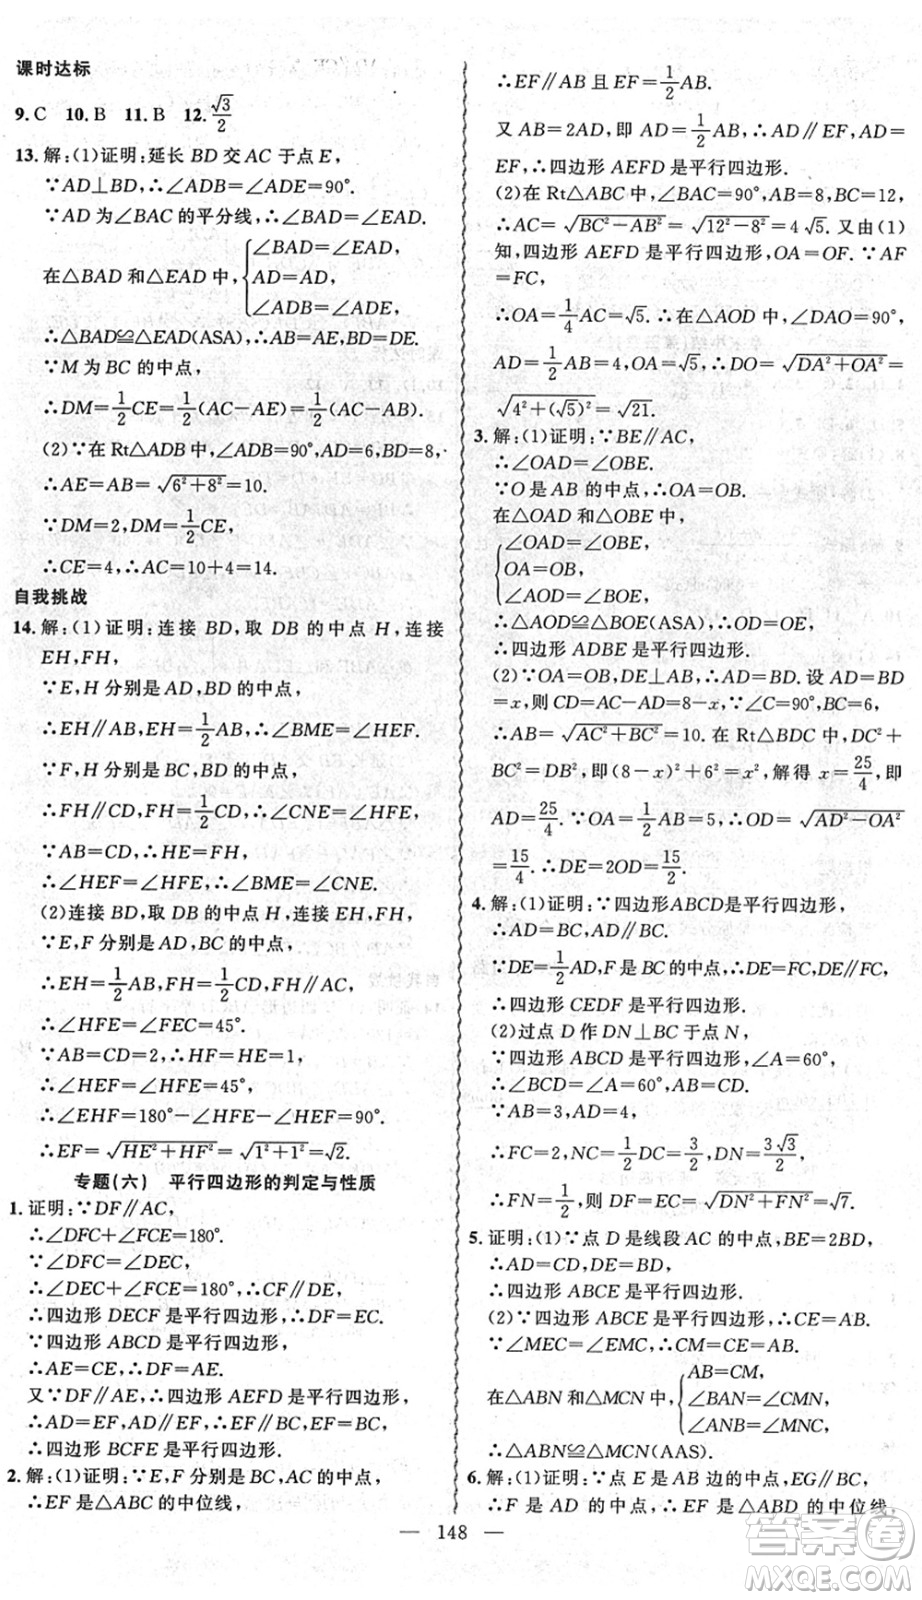 课时达标
9. C 10. B 11. B 12. √3/2
13. 解:(1)证明:延长 BD 交 AC 于点 E,
∵AD⊥BD,∴∠ADB=∠ADE=90°.
∵AD 为∠BAC 的平分线,∴∠BAD=∠EAD.
在△BAD 和△EAD 中,{∠BAD=∠EAD,
AD=AD,
∠ADB=∠ADE,
∴△BAD≌△EAD(ASA),∴AB=AE,BD=DE.
∵M 为 BC 的中点,
∴DM=1/2CE=1/2(AC-AE)=1/2(AC-AB).
(2)∵在 Rt△ADB 中,∠ADB=90°,AD=6,BD=8,
∴AE=AB=√(6²+8²)=10.
∵DM=2,DM=1/2CE,
∴CE=4,∴AC=10+4=14.
自我挑战
14. 解:(1)证明:连接 BD,取 DB 的中点 H,连接
EH,FH,
∵E,H 分别是 AD,BD 的中点,
∴EH∥AB,EH=1/2AB,∴∠BME=∠HEF.
∵F,H 分别是 BC,BD 的中点,
∴FH∥CD,FH=1/2CD,∴∠CNE=∠HFE,
∵AB=CD,∴HE=FH,
∴∠HEF=∠HFE,∴∠BME=∠CNE.
(2)连接 BD,取 DB 的中点 H,连接 EH,FH,
∵E,F 分别是 AD,BC 的中点,
∴EH=1/2AB,FH=1/2CD,FH∥AC,
∴∠HFE=∠FEC=45°.
∵AB=CD=2,∴HF=HE=1,
∴∠HEF=∠HFE=45°,
∴∠EHF=180°-∠HFE-∠HEF=90°.
∴EF=√(HE²+HF²)=√(1²+1²)=√2.
专题(六) 平行四边形的判定与性质
1. 证明:∵DF∥AC,
∴∠DFC+∠FCE=180°.
∵∠DFC=∠DEC,
∴∠DEC+∠FCE=180°,∴CF∥DE,
∴四边形 DECF 是平行四边形,∴DF=EC.
∵四边形 ABCD 是平行四边形,
∴AE=CE,∴DF=AE.
又∵DF∥AE,∴四边形 AEFD 是平行四边形,
∴AD=EF,AD∥EF,∴EF∥BC,EF=BC,
∴四边形 BCFE 是平行四边形.
2. 解:(1)证明:∵E,F 分别是 BC,AC 的中点,
∴EF 是△ABC 的中位线,
∴EF∥AB 且 EF=1/2AB.
又 AB=2AD,即 AD=1/2AB,∴AD∥EF,AD=
EF,∴四边形 AEFD 是平行四边形.
(2)在 Rt△ABC 中,∠BAC=90°,AB=8,BC=12,
∴AC=√(BC²-AB²)=√(12²-8²)=4√5. 又由(1)
知,四边形 AEFD 是平行四边形,OA=OF. ∵AF
=FC,
∴OA=1/4AC=√5. ∴在△AOD 中,∠DAO=90°,
AD=1/2AB=4,OA=√5,∴DO=√(DA²+OA²)=
√(4²+(√5)²)=√21.
3. 解:(1)证明:∵BE∥AC,
∴∠OAD=∠OBE.
∵O 是 AB 的中点,∴OA=OB.
在△OAD 和△OBE 中,
{∠OAD=∠OBE,
OA=OB,
∠AOD=∠BOE,
∴△AOD≌△BOE(ASA),∴OD=OE,
∴四边形 ADBE 是平行四边形.
(2)∵OA=OB,DE⊥AB,∴AD=BD. 设 AD=BD
=x,则 CD=AC-AD=8-x,∵∠C=90°,BC=6,
∴AB=√(AC²+BC²)=10. 在 Rt△BDC 中,DC²+
BC²=DB²,即(8-x)²+6²=x²,解得 x=25/4,即
AD=25/4. ∵OA=1/2AB=5,∴OD=√(AD²-OA²)
=15/4,∴DE=2OD=15/2.
4. 解:(1)证明:∵四边形ABCD是平行四边形,
∴AD=BC,AD∥BC.
∵DE=1/2AD,F 是 BC 的中点,∴DE=FC,DE∥FC,
∴四边形 CEDF 是平行四边形.
(2)过点 D 作 DN⊥BC 于点 N,
∵四边形 ABCD 是平行四边形,∠A=60°,
∴∠BCD=∠A=60°,CD=AB=3.
∵AB=3,AD=4,
∴FC=2,NC=1/2DC=3/2,DN=3√3/2,
∴FN=1/2,则 DF=EC=√(DN²+FN²)=√7.
5. 证明:(1)∵点 D 是线段 AC 的中点,BE=2BD,
∴AD=CD,DE=BD,
∴四边形 ABCE 是平行四边形.
(2)∵四边形 ABCE 是平行四边形,∴CE=AB.
∵∠MEC=∠EMC,∴CM=CE=AB.
在△ABN 和△MCN 中,{AB=CM,
∠BAN=∠CMN,
∠ANB=∠MNC,
∴△ABN≌△MCN(AAS).
6. 解:(1)证明:∵点 E 是 AB 边的中点,EG∥BC,
∴F 是 AD 的中点,∴EF 是△ABD 的中位线,
— 148 —
答案圈
MXQE.COM